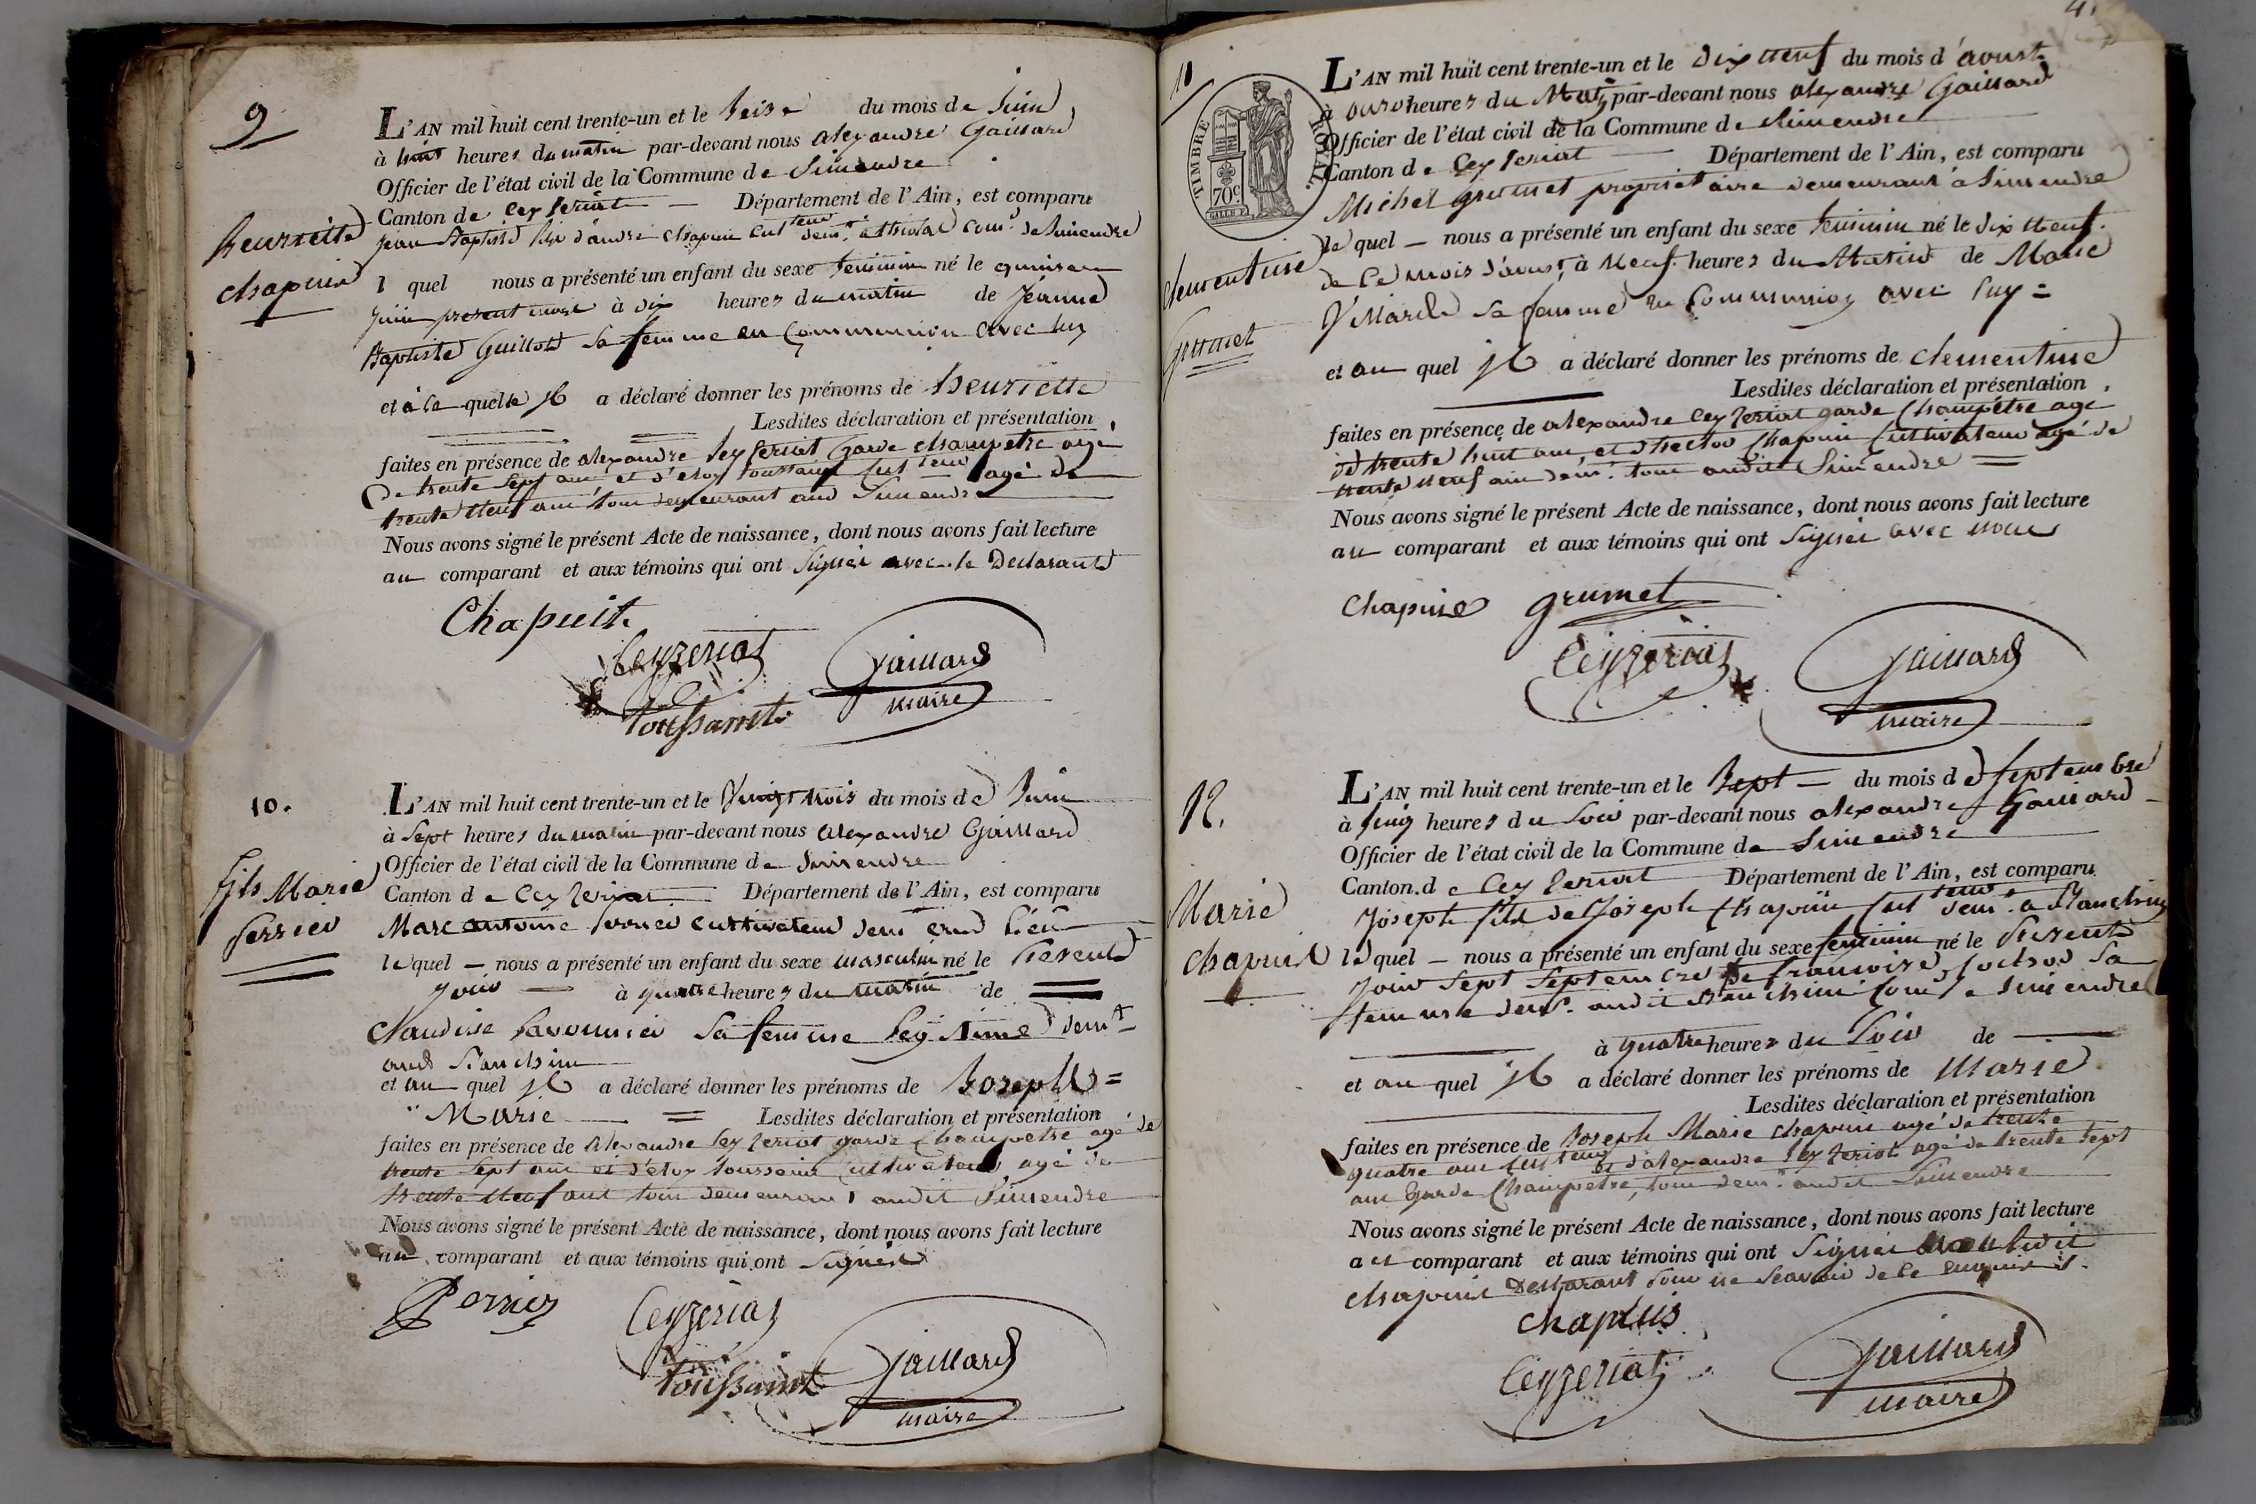 9
L'AN mil huit cent trente-un et le seize du mois de juin
à huit heures du matin par-devant nous alexandre Gaillard
Officier de l'état civil de la Commune de Simandre
Canton de Ceyzeriat Département de l'Ain, est comparu
jean Baptiste fils d'andré chapuis Cult.teur dem.t à Com.e de Simendre
henriette
chapuis
l quel nous a présenté un enfant du sexe feminin né le quinze
juin present mois à dix heures du matin de jeanne
Baptiste Guillot Sa femme en Communion avec luy
et à la quelle il a déclaré donner les prénoms de henriette
Lesdites déclaration et présentation
faites en présence de alexandre Ceyzeriat Garde champetre agé
De trente Sept ans et d'eloy toussaint Cult.teur agé de
trente neuf ans tous demeurant aud Simendre
Nous avons signé le présent Acte de naissance, dont nous avons fait lecture
au comparant et aux témoins qui ont Signés avec le Declarant
Chapuit
Ceyzeriat
Gaillard
maire
toussaint
10.
L'AN mil huit cent trente-un et le Vingt trois du mois de Juin
à Sept heures du matin par-devant nous alexandre Gaillard
Officier de l'état civil de la Commune de Simendre
Canton de Ceyzeriat Département de l'Ain, est comparu
fils Marie
ferrier
Marc antoine cultivateur dem.t
le quel nous a présenté un enfant du sexe masculin né le Present
jour à quatre heures du matin de
Claudine Savounier Sa femme legitime dem.t
aud Banchin
et au quel il a déclaré donner les prénoms de Joseph =
Marie = Lesdites déclaration et présentation
faites en présence de Alexandre Ceyzeriat garde Champetre agé de
trente Sept ans et d'eloy toussaint Cultivateur agé de
trente neuf ans tous demeurant audit Simendre
Nous avons signé le présent Acte de naissance, dont nous avons fait lecture
au comparant et aux témoins qui ont Signés
Perrier
Ceyzeriat
Gaillard
maire
toussaint
11
TIMBRE ROYAL.
70c
L'AN mil huit cent trente-un et le dix neuf du mois d'aoust
à onze heures du Matin par-devant nous alexandre Gaillard
Officier de l'état civil de la Commune de Simendre
Canton de Ceyzeriat Département de l'Ain, est comparu
Michel grumet propriétaire demeurant à Simendre
le quel nous a présenté un enfant du sexe feminin né le dix neuf
de Ce mois d'aoust à Neuf heures du Matin de Marie
clementine
Grumet
Villard Sa femme en Communion avec luy =
et au quel il a déclaré donner les prénoms de clementine
Lesdites déclaration et présentation
faites en présence de alexandre Ceyzeriat garde Champêtre agé
de trente huit ans, et d'hector Chapuis Cultivateur agé de
trente neuf ans dem.t tous audit Simendre =
Nous avons signé le présent Acte de naissance, dont nous avons fait lecture
au comparant et aux témoins qui ont Signés avec nous
Chapuis grumet
Ceyzeriat
Gaillard
maire
12.
L'AN mil huit cent trente-un et le Sept du mois de septembre
à Cinq heures du Soir par-devant nous alexandre Gaillard
Officier de l'état civil de la Commune de Simendre
Canton de Ceyzeriat Département de l'Ain, est comparu
Marie
Chapuis
Joseph fils de Joseph Chapuis Cult.teur dem.t a Banchin
le quel nous a présenté un enfant du sexe feminin né le Present
jour Sept Septembre de francoise Sochod Sa
femme dem.t audit Banchin Com.e de Simendre
à quatre heures du Soir de
et au quel il a déclaré donner les prénoms de Marie
Lesdites déclaration et présentation
faites en présence de Joseph Marie chapuis agé de trente
quatre ans Cult.teur et d'alexandre Ceyzeriat agé de trente Sept
ans Garde Champetre, tous dem.t audit Simendre
Nous avons signé le présent Acte de naissance, dont nous avons fait lecture
au comparant et aux témoins qui ont Signés
chapuis Declarant pour ne Scavoir de Ce enquis
chapuis
Ceyzeriat
Gaillard
maire